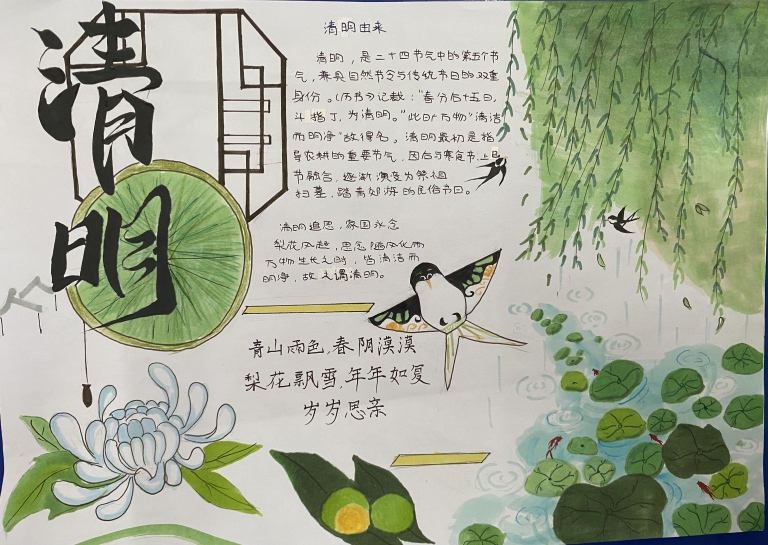 清明
清明由来
清明，是二十四节气中的第五个节
气，兼具自然节令与传统节日的双重
身份。《历书》记载："春分后十五日，
斗指丁，为清明。"此时万物"清洁
而明净"故得名。清明最初是指
导农耕的重要节气，因后与寒食节、上巳
节融合，逐渐演变为祭祖
扫墓、踏青郊游的民俗节日。
清明追思，家国永念
梨花风起，思念随风化雨
万物生长之时，皆清洁而
明净，故之谓清明。
青山雨色，春阴漠漠
梨花飘雪，年年如复
岁岁思亲